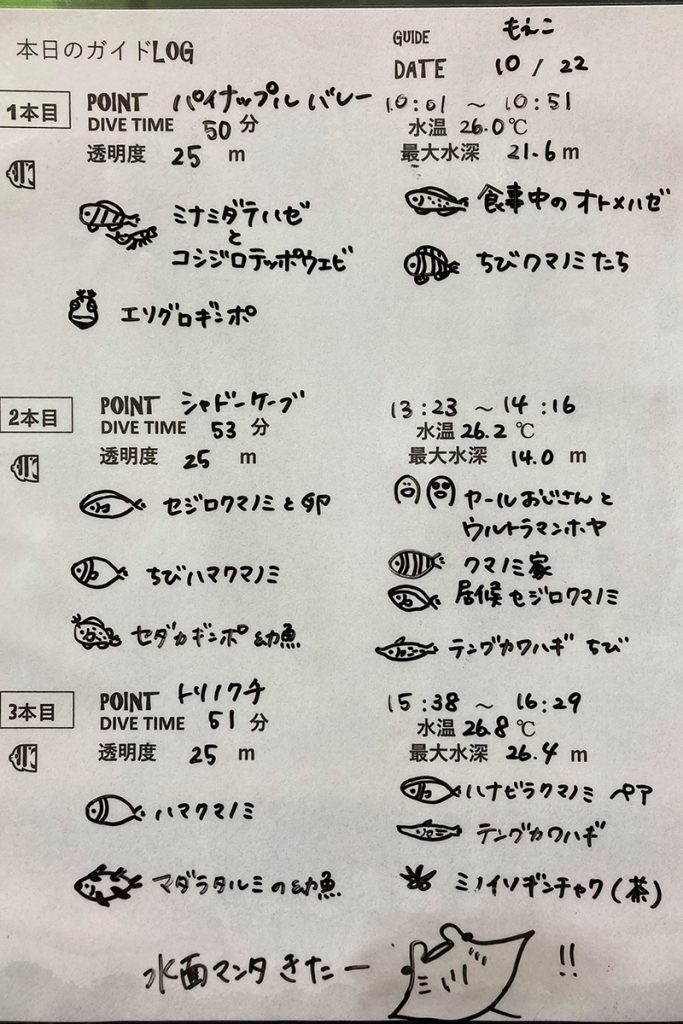 本日のガイドLOG
GUIDE もえこ
DATE 10 / 22
1本目
POINT パイナップル バレー 10:01 ~ 10:51
DIVE TIME 50 分 水温 26.0 ℃
透明度 25 m 最大水深 21.6 m
ミナミダテハゼ
と
コシジロテッポウエビ
エリグロギンポ
食事中の オトメハゼ
ちびクマノミたち
2本目
POINT シャドーケーブ 13:23 ~ 14:16
DIVE TIME 53 分 水温 26.2 ℃
透明度 25 m 最大水深 14.0 m
セジロクマノミと卵
ちびハマクマノミ
セダカギンポ幼魚
ヤールおじさんと
ウルトラマンホヤ
クマノミ家
居候セジロクマノミ
テングカワハギ ちび
3本目
POINT トリノクチ 15:38 ~ 16:29
DIVE TIME 51 分 水温 26.8 ℃
透明度 25 m 最大水深 26.4 m
ハマクマノミ
マダラタルミの幼魚
ハナビラクマノミ ペア
テングカワハギ
ミノイソギンチャク(茶)
水面マンタ きたー !!